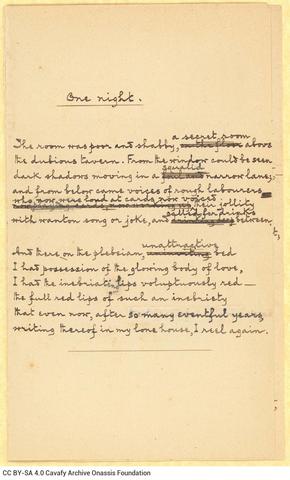 One night.
a secret room
The room was poor and shabby, on the floor above
the dubious tavern. From the window could be seen
squalid
dark shadows moving in a and narrow lane;
and from below came voices of rough labourers
who now were loud at cards now voiced their jollity
called for drinks
with wanton song or joke, and between.
unattractive
And there on the plebeian, bed
I had possession of the glowing body of love,
I had the inebriate lips voluptuously red —
the full red lips of such an inebriety
that even now, after so many eventful years,
writing thereof in my lone house, I reel again.
CC BY-SA 4.0 Cavafy Archive Onassis Foundation